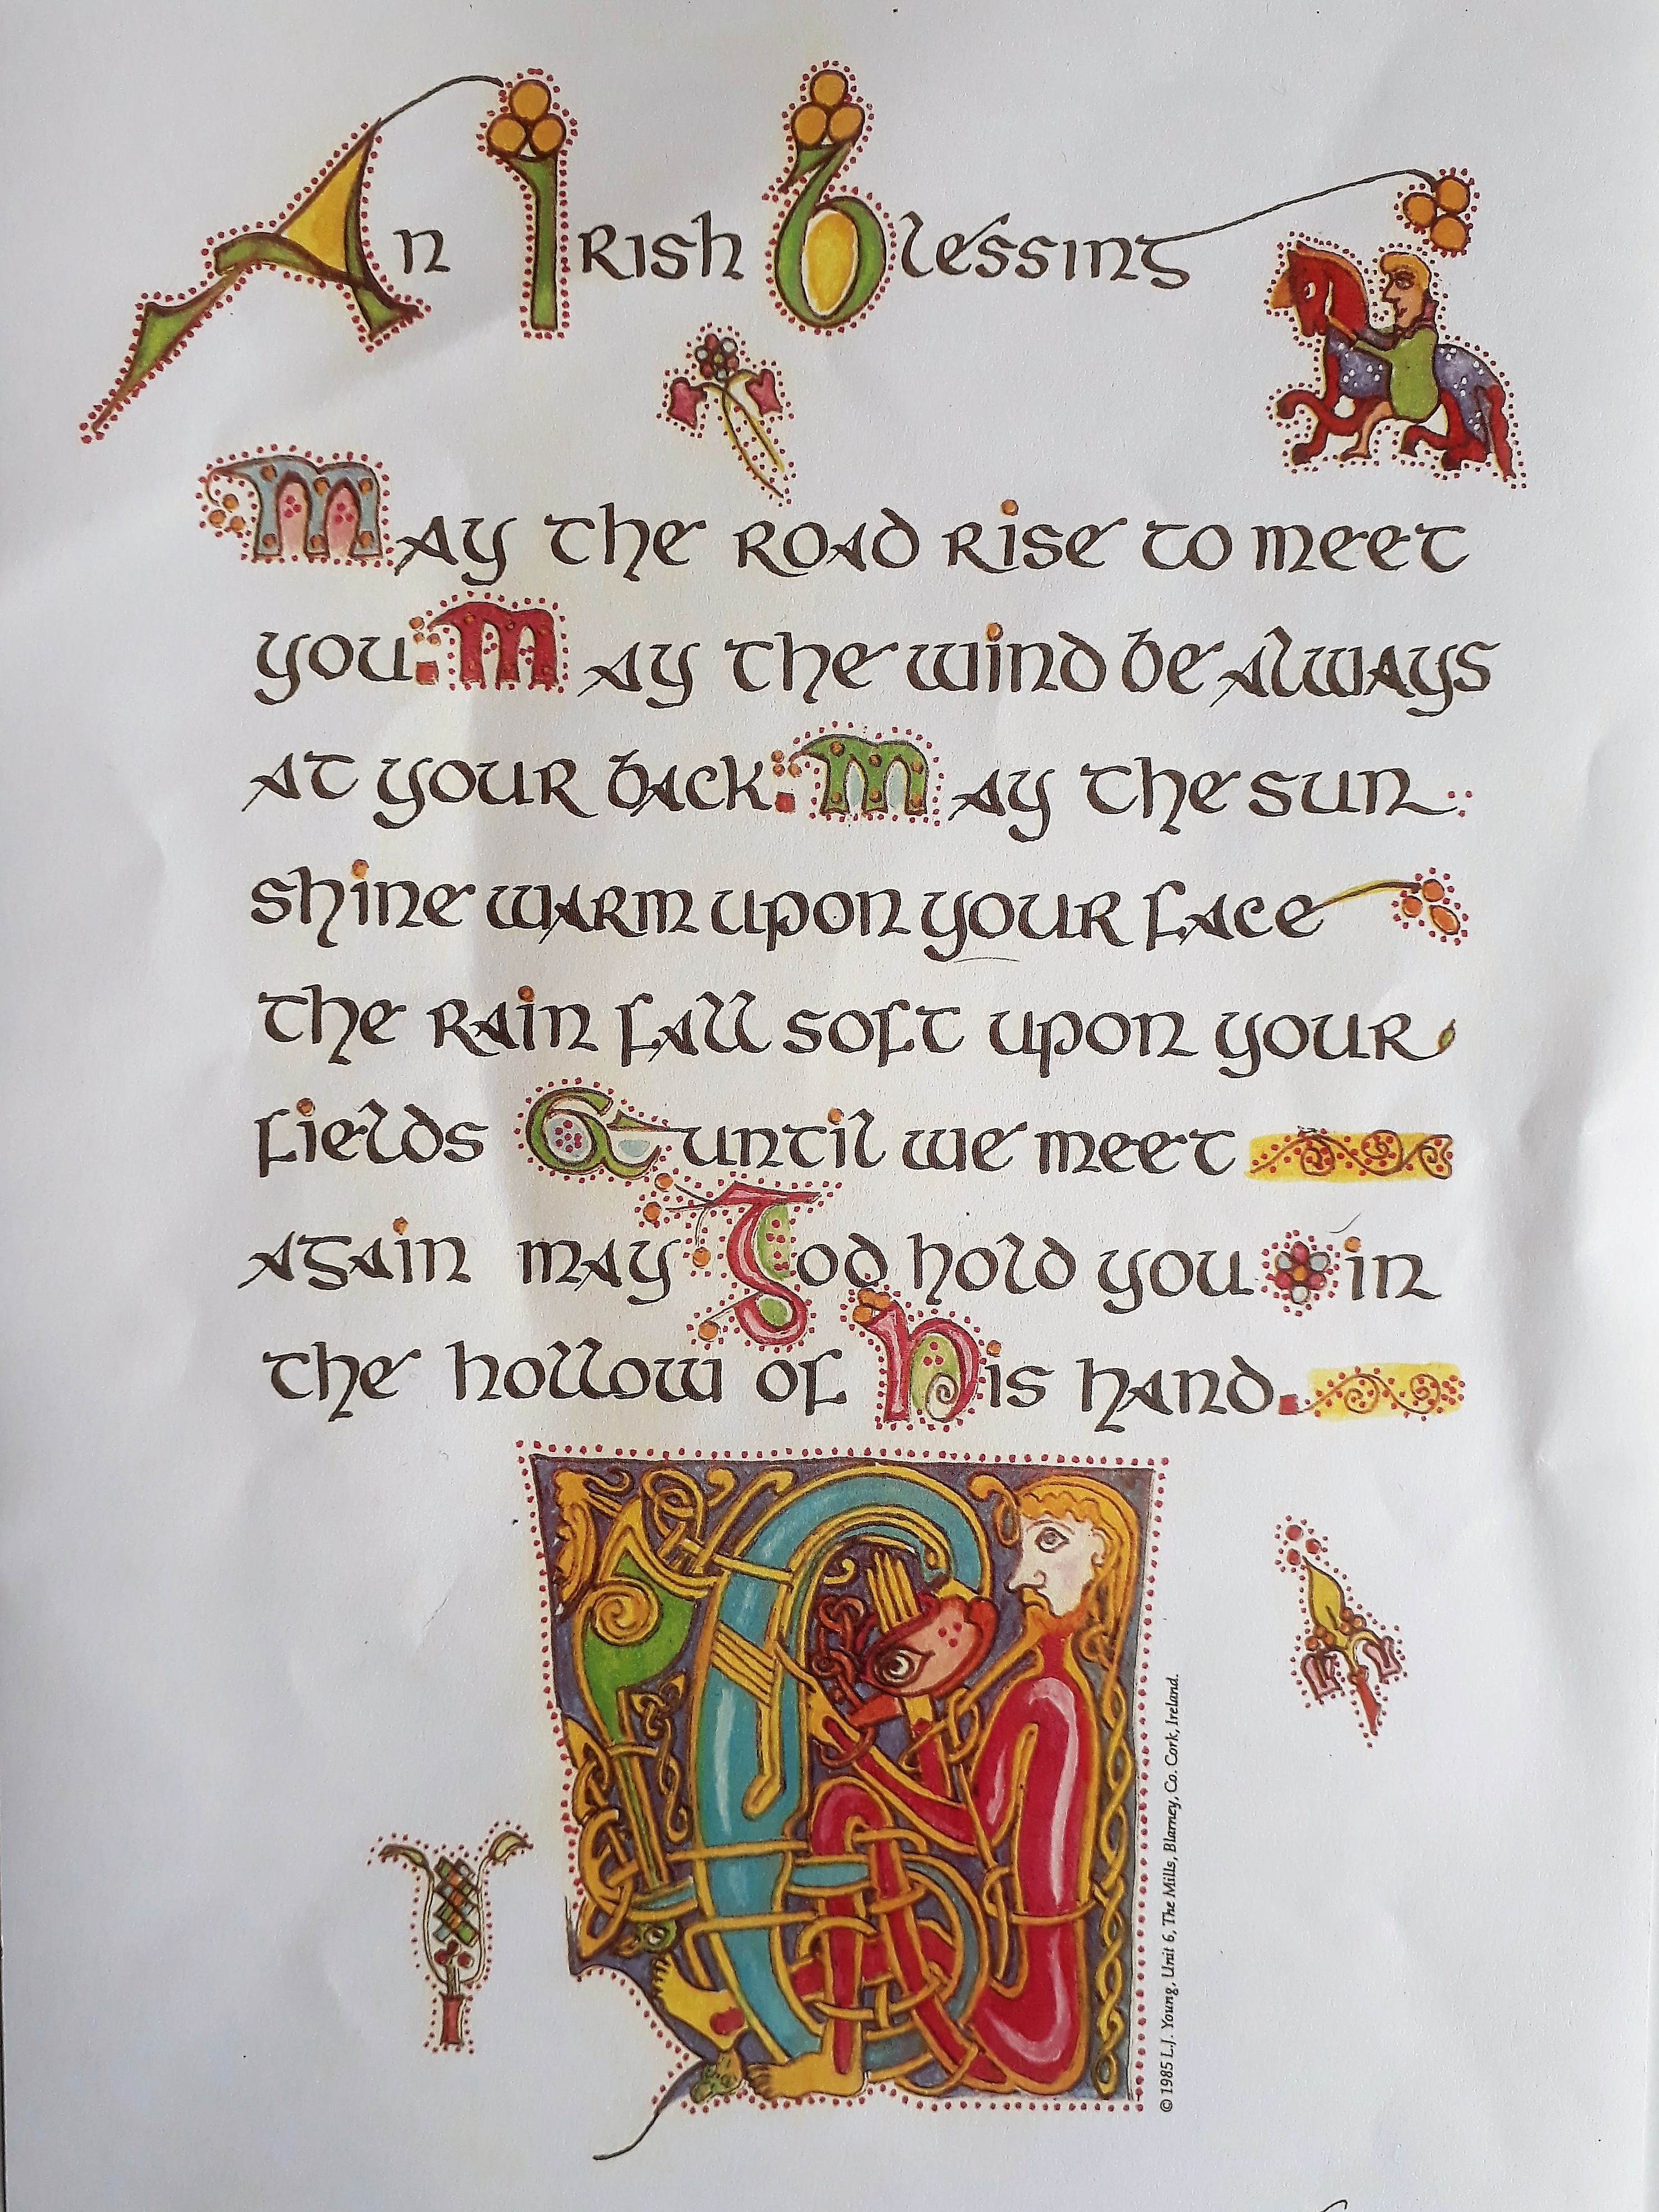 An Irish Blessing
May the road rise to meet
you. May the wind be always
at your back. May the sun
shine warm upon your face
the rain fall soft upon your
fields & until we meet
again may God hold you in
the hollow of His hand.
© 1985 L.J. Young, Unit 6, The Mills, Blarney, Co. Cork, Ireland.